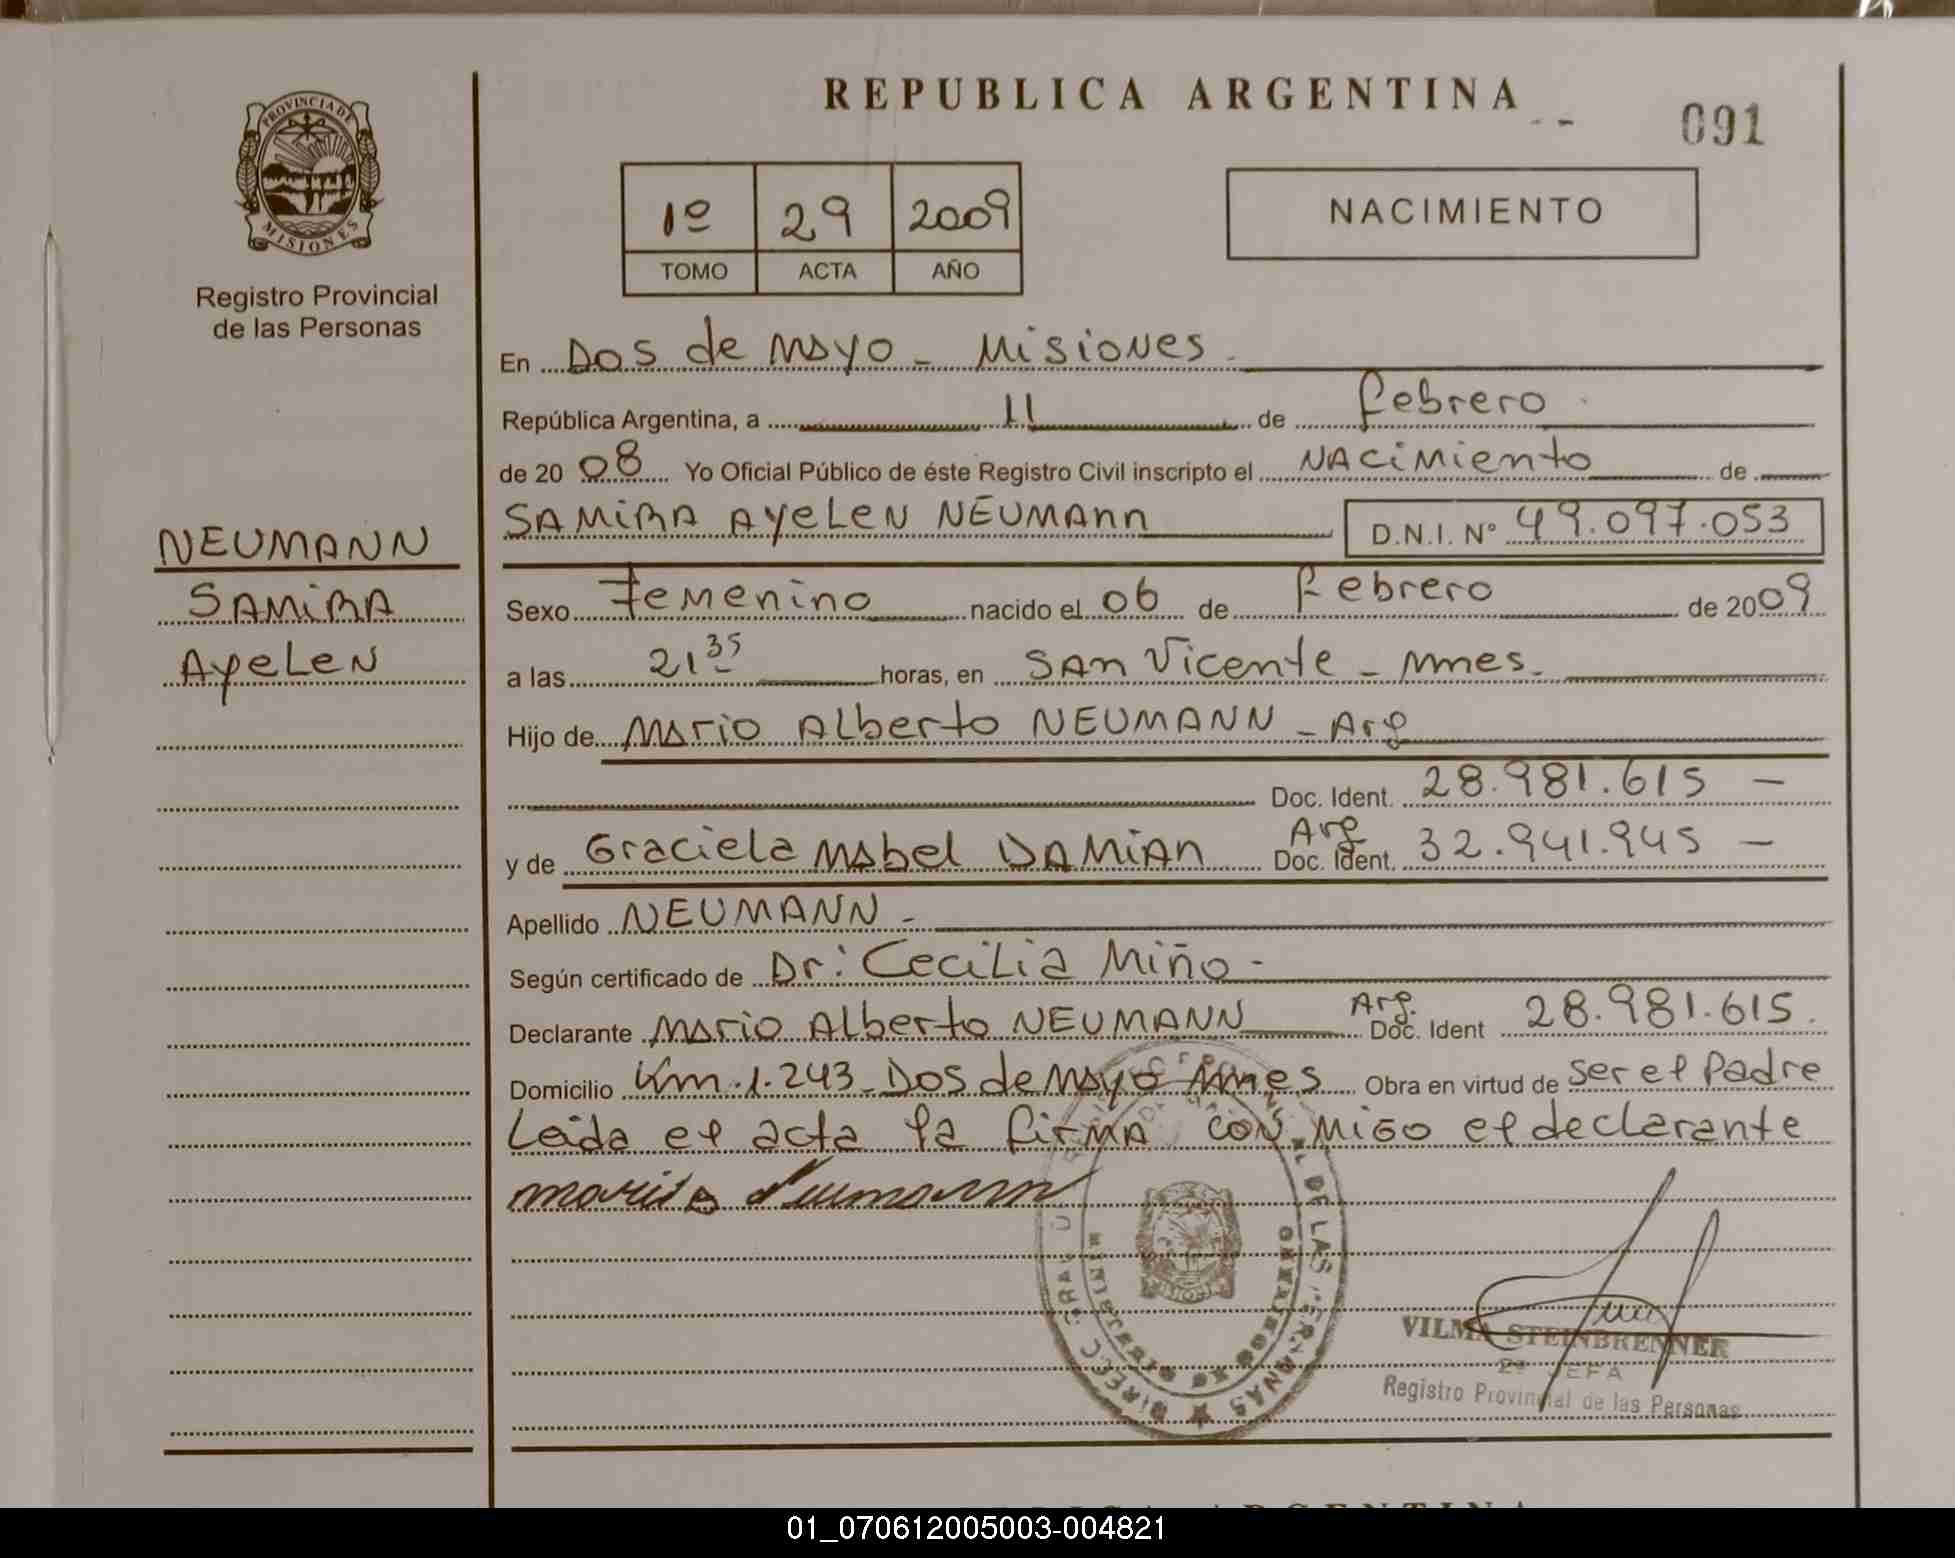 REPUBLICA ARGENTINA
091
PROVINCIA DE
MISIONES
Registro Provincial
de las Personas
1º 29 2009
TOMO ACTA AÑO
NACIMIENTO
En Dos de Mayo - Misiones.
República Argentina, a 11 de febrero
de 2008 Yo Oficial Público de éste Registro Civil inscripto el NACimiento de
SAMiRA AyeLeN NEUMAnn D.N.I. Nº 49.097.053
NEUMANN
SAMiRA
AyeLeN
Sexo Femenino nacido el 06 de febrero de 2009
a las 21 35 horas, en SAn Vicente - Mnes.
Hijo de Mario Alberto NEUMANN - Arg
Doc. Ident. 28.981.615 -
y de Graciela Mabel DAMiAn Arg Doc. Ident. 32.941.945 -
Apellido NEUMANN -
Según certificado de Dr: Cecilia Miño -
Declarante Mario Alberto NEUMANN Arg. Doc. Ident 28.981.615.
Domicilio Km. 1.243 - Dos de Mayo Mnes Obra en virtud de ser el Padre
Leida el acta la firMA CON MiGo el declarante
Mario Neumann
VILMA STEINBRENNER
2º JEFA
Registro Provincial de las Personas
01_070612005003-004821